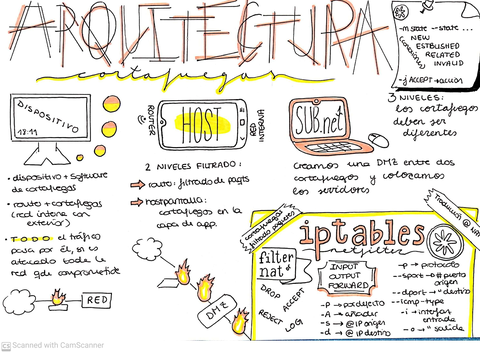 ARQUITECTURA
cortafuegos
-m state --state ...
(conexiones)
NEW
ESTBLISHED
RELATED
INVALID
-j ACCEPT → acción
DISPOSITIVO
18:11
ROUTER
HOST
RED INTERNA
SUB.net
3 NIVELES:
los cortafuegos
deben ser
diferentes
• dispositivo + software
de cortafuegos
• route + cortafuegos
(red interna con
exterior)
• TODO el tráfico
pasa por él, si es
atacado toda la
red
2 NIVELES FILTRADO:
⇒ router: filtrado de
⇒ host
cortafuegos en la
capa de app.
creamos una DMZ entre dos
cortafuegos y colocamos
los servidores
RED
DMZ
cortafuegos
filtrado paquetes
iptables
netfilter
Traducción @ NAT
filter
nat
DROP
ACCEPT
REJECT
LOG
INPUT
OUTPUT
FORWARD
-P → por defecto
-A → añadir
-s → @IP origen
-d → @IP destino
-p → protocolo
--sport → # puerto
origen
--dport → " destino
--icmp-type
-i → interfaz
entrada
-o → " salida
CS Scanned with CamScanner